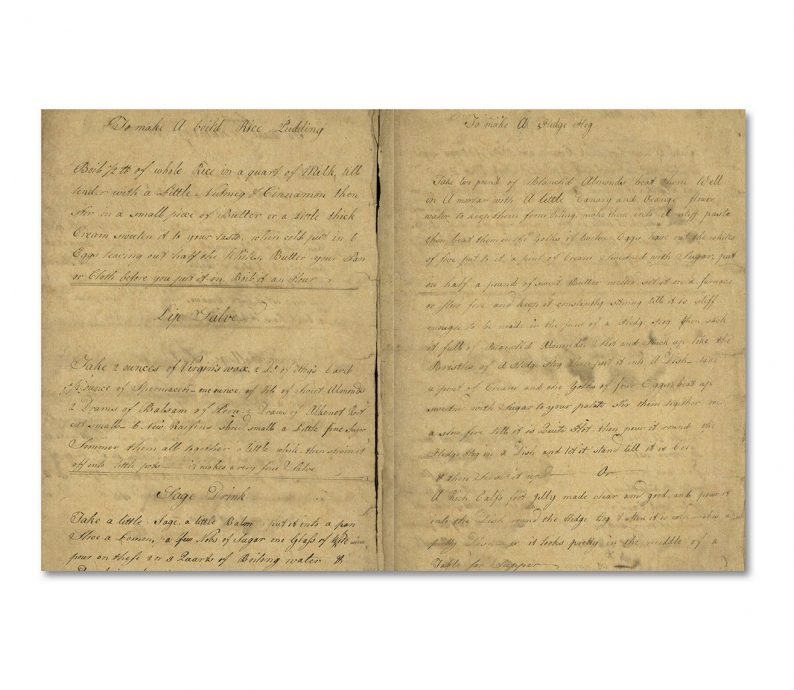 To make A boild Rice Pudding
Boil 1/2 lb of whole Rice in a quart of Milk till
tender with a Little Nutmeg & Cinnamon then
stir in a small piece of Butter or a little thick
Cream sweeten it to your taste, when cold put in 6
Eggs leaving out half the Whites, Butter your Pan
or Cloth before you put it in Boil it an Hour
Lip Salve
Take 2 ounces of Virgin's wax, 2 of Hog's Lard
ounce of Spermaceti one ounce of Oil of Sweet Almonds
2 Drams of Balsam of Peru 2 Drams of Alkenot Root
cut small 6 New Raisins shred small a Little fine Sugar
Simmer them all together a little while then strain it
off into little pots it makes a very fine Salve
Sage Drink
Take a little Sage, a little Balm put it into a pan
Slice a Lemon, a few of Sugar one Glass of White wine
pour on these 2 or 3 Quarts of Boiling water &
To make A Hedge Hog
Take two pound of Blanch'd Almonds beat them Well
in A mortar with A little Canary and Orange flower
water to keep them from Oiling, make them into A stiff paste
then beat them in the Yolks of twelve Eggs leave out the whites
of five put to it a pint of Cream Sweetned with Sugar, put
in half a pound of sweet Butter melted set it on a furnace
or slow fire and keep it constantly stiring till it is stiff
enough to be made in the form of a Hedge Hog then stick
it full of Blanched Almonds Slit and stuck up like the
Bristles of A Hedge Hog then put it into A Dish take
a pint of Cream and the Yolks of four Eggs beat up
sweetned with Sugar to your palate Stir them together on
a slow fire till it is Quite Hot then pour it round the
Hedge Hog in a Dish and let it stand till it is Cold
& then it up
Or
A Rich Calfs foot Jelly made clear and good, and pour it
into the Dish round the Hedge Hog & when it is cold makes a
pretty Dish or it looks pretty in the middle of a
Table for Supper